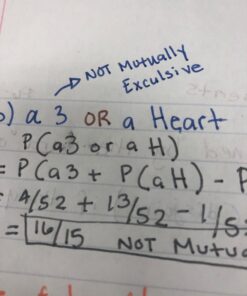 NOT Mutually
Exculsive
) a 3 OR a Heart
P(a3 or a H)
= P(a3 + P(aH) - P
4/52 + 13/52 - 1/5
= 16/15 NOT Mutu